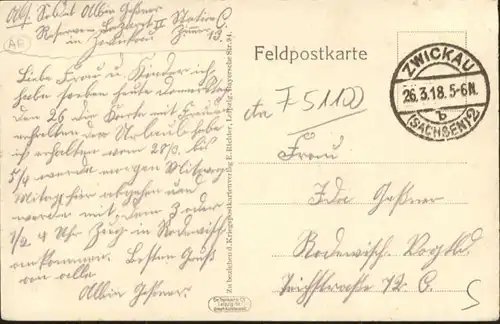 Abs. Soldat Albin Geßner
Reserve Lazarett II Station C.
in Zwickau Zimmer 13.
Liebe Frau u Kinder ich
habe soeben heute
den 26 die Karte mit
erhalten den Urlaub habe
ich erhalten vom 28/3. bis
5/4 werde morgen Mittwoch
Mittag hier abgehen und
werde mit dem 3 oder
1/2 4 Uhr Zug in Rodewisch
ankommen. Besten Gruß
an alle
Albin Geßner.
Zu beziehen d. Kriegspostkartenverlag E. Richter, Leipzig, Bayersche Str. 84.
Feldpostkarte
ZWICKAU
26.3.18. 5-6N.
b
(SACHSEN) 2
F5110
Frau
Ida Geßner
Rodewisch. Vogtld.
Teichstraße 12 C.